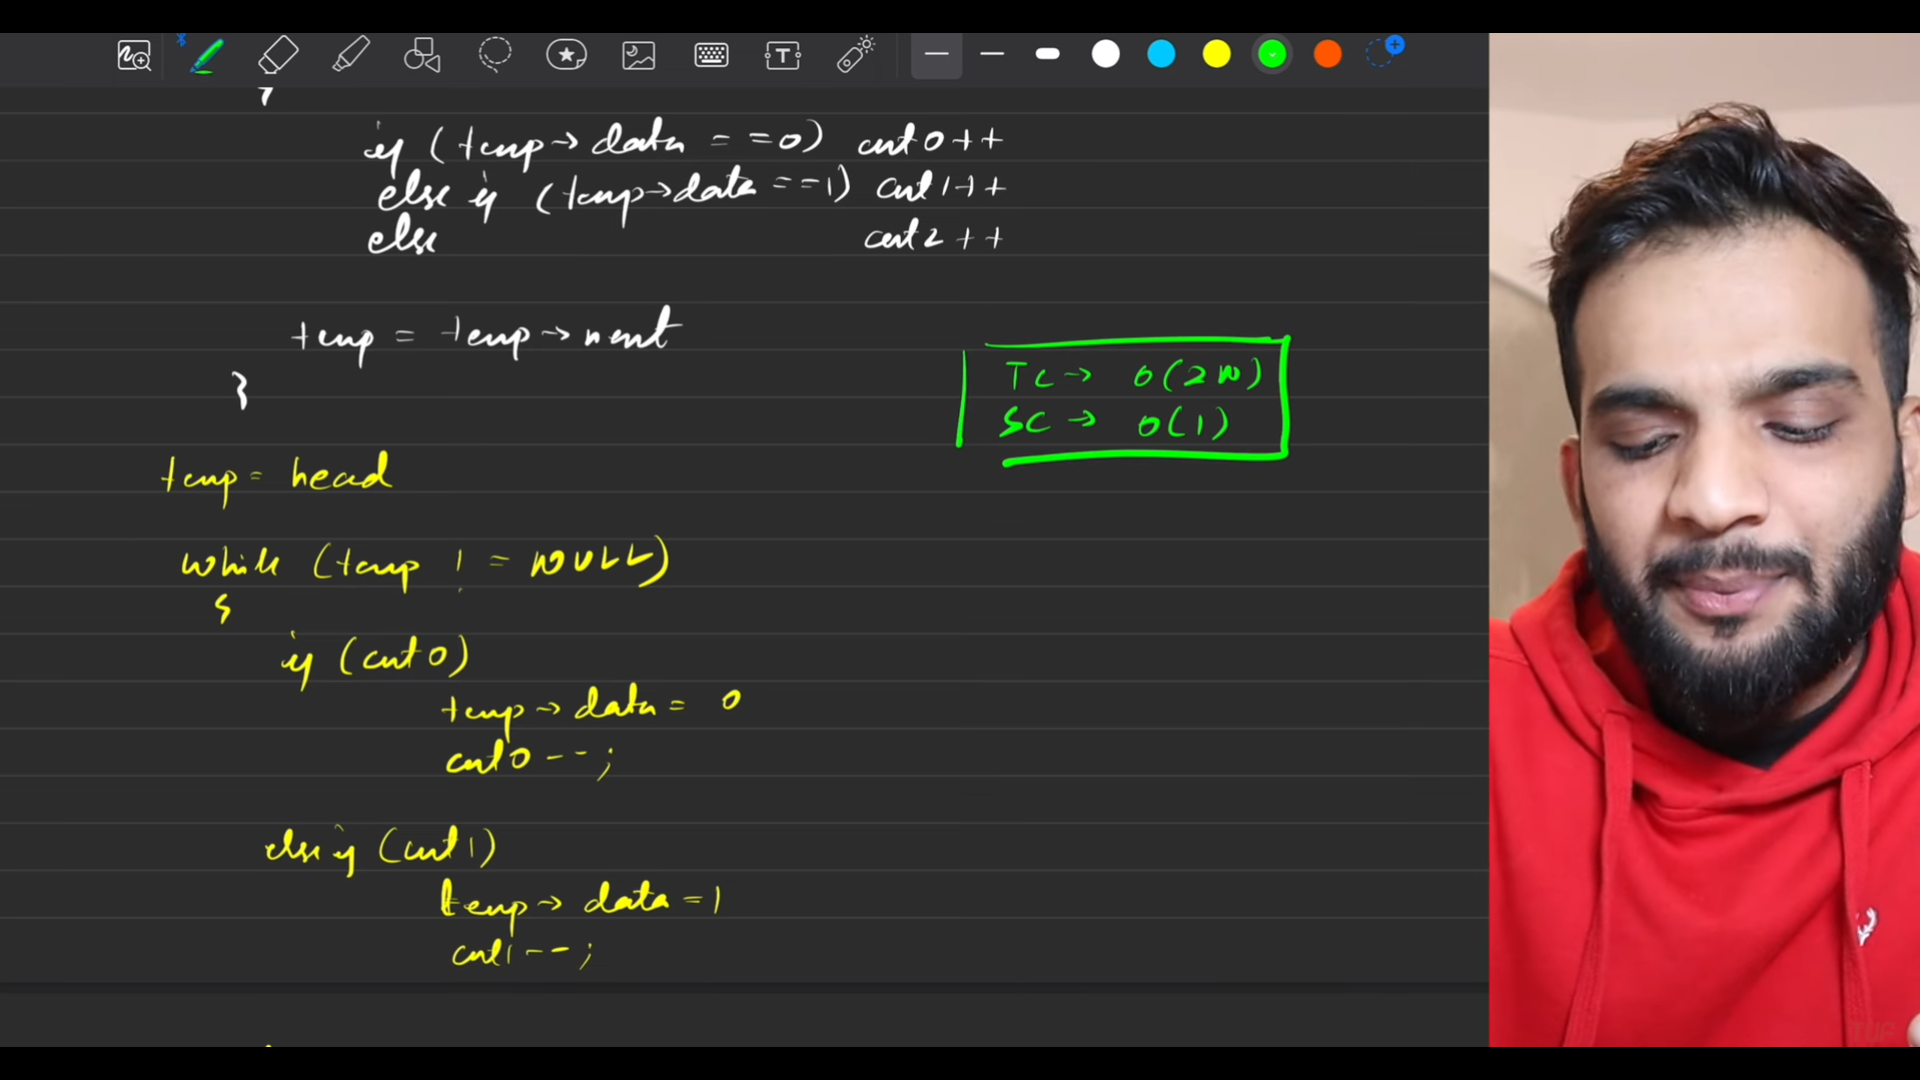 }
if (temp→data == 0) cnt0++
else if (temp→data == 1) cnt1++
else cnt2++
temp = temp→next
}
TC → O(2N)
SC → O(1)
temp = head
while (temp != NULL)
{
if (cnt0)
temp→data = 0
cnt0--;
else if (cnt1)
temp→data = 1
cnt1--;
TUF